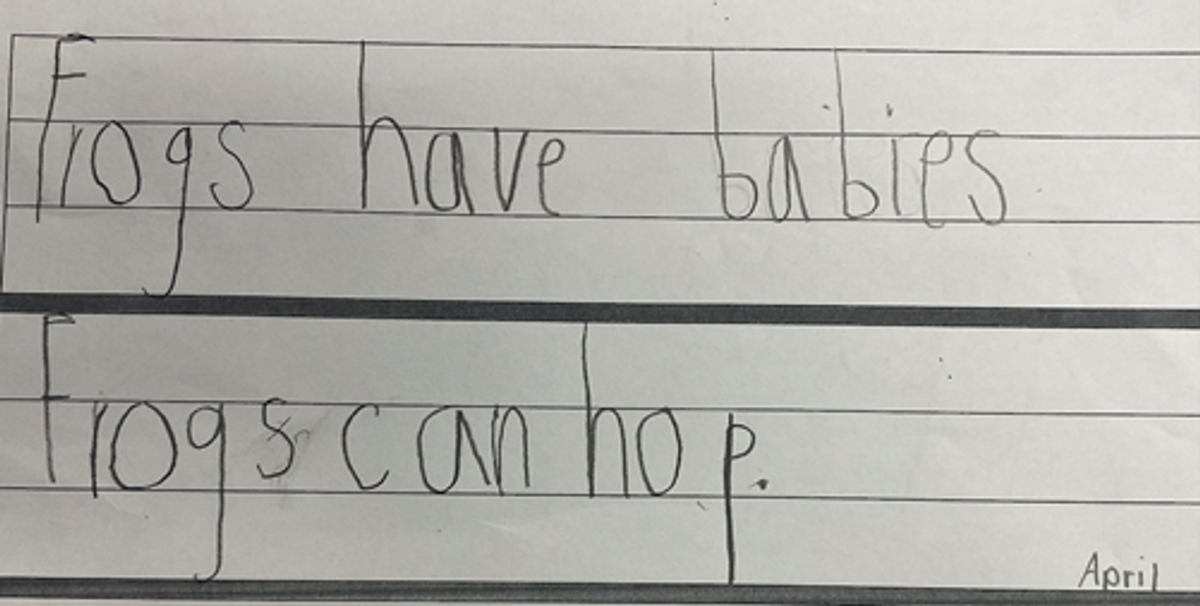 Frogs have babies
Frogs can hop.
April